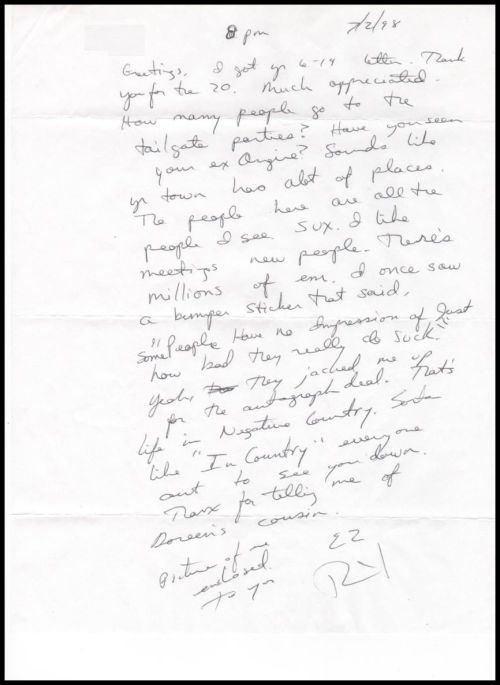 8 pm
7/2/98
Greetings, I got yr 6-19 letter. Thank
you for the 20. Much appreciated.
How many people go to the
tailgate parties? Have you seen
your ex Angie? Sounds like
yr town has alot of places.
The people here are all the
people I see. SUX. I like
meetings new people. There's
millions of em. I once saw
a bumper sticker that said,
"Some People Have no Impression of Just
how bad they really do Suck."
Yeah, they jacked me up
for the autograph deal. That's
life in Negative Country. Sorta
like "In Country" everyone
out to see you down.
Thanx for telling me of
Doreen's cousin.
Picture of me
enclosed
to you
EZ